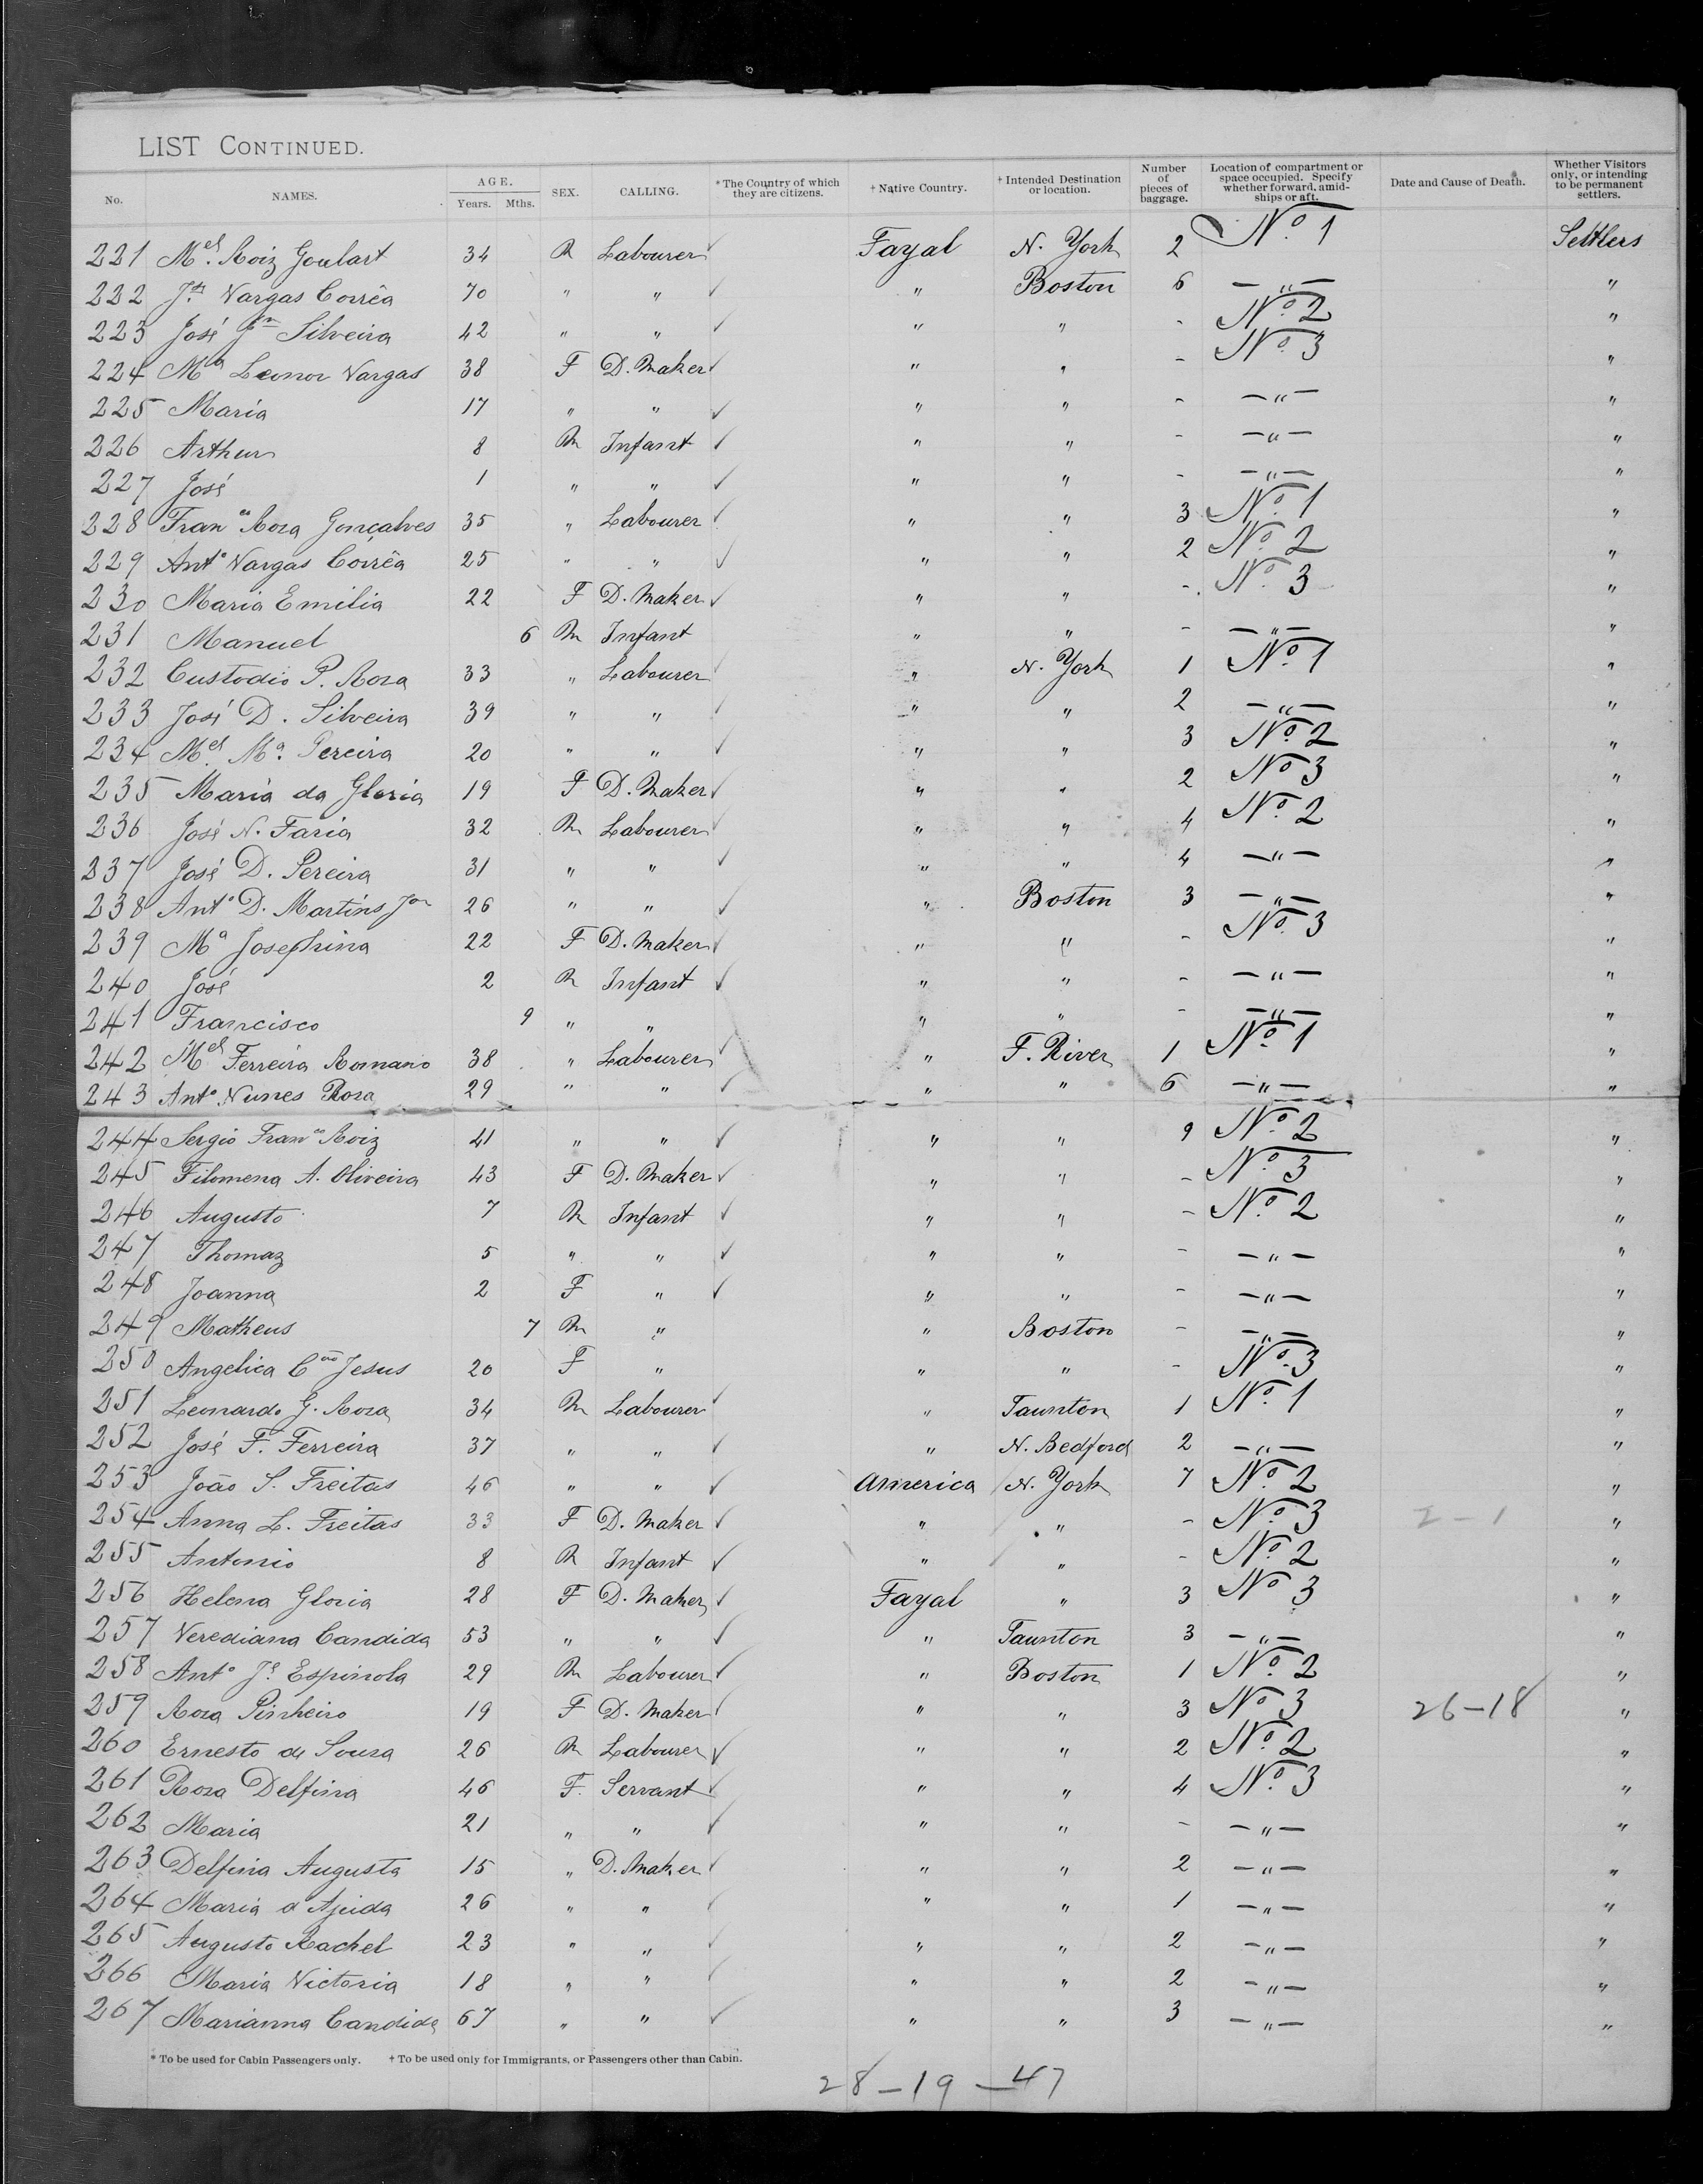 LIST CONTINUED.
No. NAMES. AGE. Years. Mths. SEX. CALLING. *The Country of which they are citizens. †Native Country. †Intended Destination or location. Number of pieces of baggage. Location of compartment or space occupied. Specify whether forward, amid-ships or aft. Date and Cause of Death. Whether Visitors only, or intending to be permanent settlers.
221 Mel. Roiz Goulart 34 M Labourer ✓ Fayal N. York 2 No. 1 Settlers
222 Vargas Corrêa 70 " " ✓ " Boston 6 —"— "
223 José Jn Silveira 42 " " ✓ " " - No. 2 "
224 Ma Leonor Vargas 38 F D. Maker ✓ " " - No. 3 "
225 Maria 17 " " ✓ " " - —"— "
226 Arthur 8 M Infant ✓ " " - —"— "
227 José 1 " " ✓ " " - —"— "
228 Franco Rosa Gonçalves 35 " Labourer ✓ " " 3 No. 1 "
229 Anto Vargas Corrêa 25 " " ✓ " " 2 No. 2 "
230 Maria Emilia 22 F D. Maker ✓ " " - No. 3 "
231 Manuel 6 M Infant " " - —"— "
232 Custodio P. Rosa 33 " Labourer ✓ " N. York 1 No. 1 "
233 José D. Silveira 39 " " ✓ " " 2 —"— "
234 Mel. Ma. Pereira 20 " " ✓ " " 3 No. 2 "
235 Maria da Gloria 19 F D. Maker ✓ " " 2 No 3 "
236 José N. Faria 32 M Labourer ✓ " " 4 No. 2 "
237 José D. Pereira 31 " " ✓ " " 4 —"— "
238 Anto D. Martins Jor 26 " " ✓ " Boston 3 —"— "
239 Ma Josephina 22 F D. Maker ✓ " " - No. 3 "
240 José 2 M Infant ✓ " " - —"— "
241 Francisco 9 " " " " - —"— "
242 Mel Ferreira Romano 38 " Labourer ✓ " F. River 1 No. 1 "
243 Anto Nunes Rosa 29 " " ✓ " " 6 —"— "
244 Sergio Franco Roiz 41 " " ✓ " " 9 No. 2 "
245 Filomena A. Oliveira 43 F D. Maker ✓ " " - No. 3 "
246 Augusto 7 M Infant ✓ " " - No. 2 "
247 Thomaz 5 " " ✓ " " - —"— "
248 Joanna 2 F " ✓ " " - —"— "
249 Matheus 7 M " " Boston - —"— "
250 Angelica Cão Jesus 20 F " " " - No. 3 "
251 Leonardo G. Rosa 34 M Labourer ✓ " Taunton 1 No. 1 "
252 José F. Ferreira 37 " " ✓ " N. Bedford 2 —"— "
253 João S. Freitas 46 " " ✓ America N. York 7 No. 2 "
254 Anna L. Freitas 33 F D. Maker ✓ " " - No. 3 2-1 "
255 Antonio 8 M Infant ✓ " " - No. 2 "
256 Helena Gloria 28 F D. Maker ✓ Fayal " 3 No 3 "
257 Verediana Candida 53 " " ✓ " Taunton 3 —"— "
258 Anto Je Espinola 29 M Labourer ✓ " Boston 1 No. 2 "
259 Rosa Pinheiro 19 F D. Maker ✓ " " 3 No 3 26-18 "
260 Ernesto de Sousa 26 M Labourer ✓ " " 2 No. 2 "
261 Rosa Delfina 46 F. Servant ✓ " " 4 No. 3 "
262 Maria 21 " " ✓ " " - —"— "
263 Delfina Augusta 15 " D. Maker ✓ " " 2 —"— "
264 Maria d Ajuida 26 " " ✓ " " 1 —"— "
265 Augusto Rachel 23 " " ✓ " " 2 —"— "
266 Maria Victoria 18 " " ✓ " " 2 —"— "
267 Marianna Candida 67 " " ✓ " " 3 —"— "
* To be used for Cabin Passengers only. † To be used only for Immigrants, or Passengers other than Cabin.
28 – 19 – 47